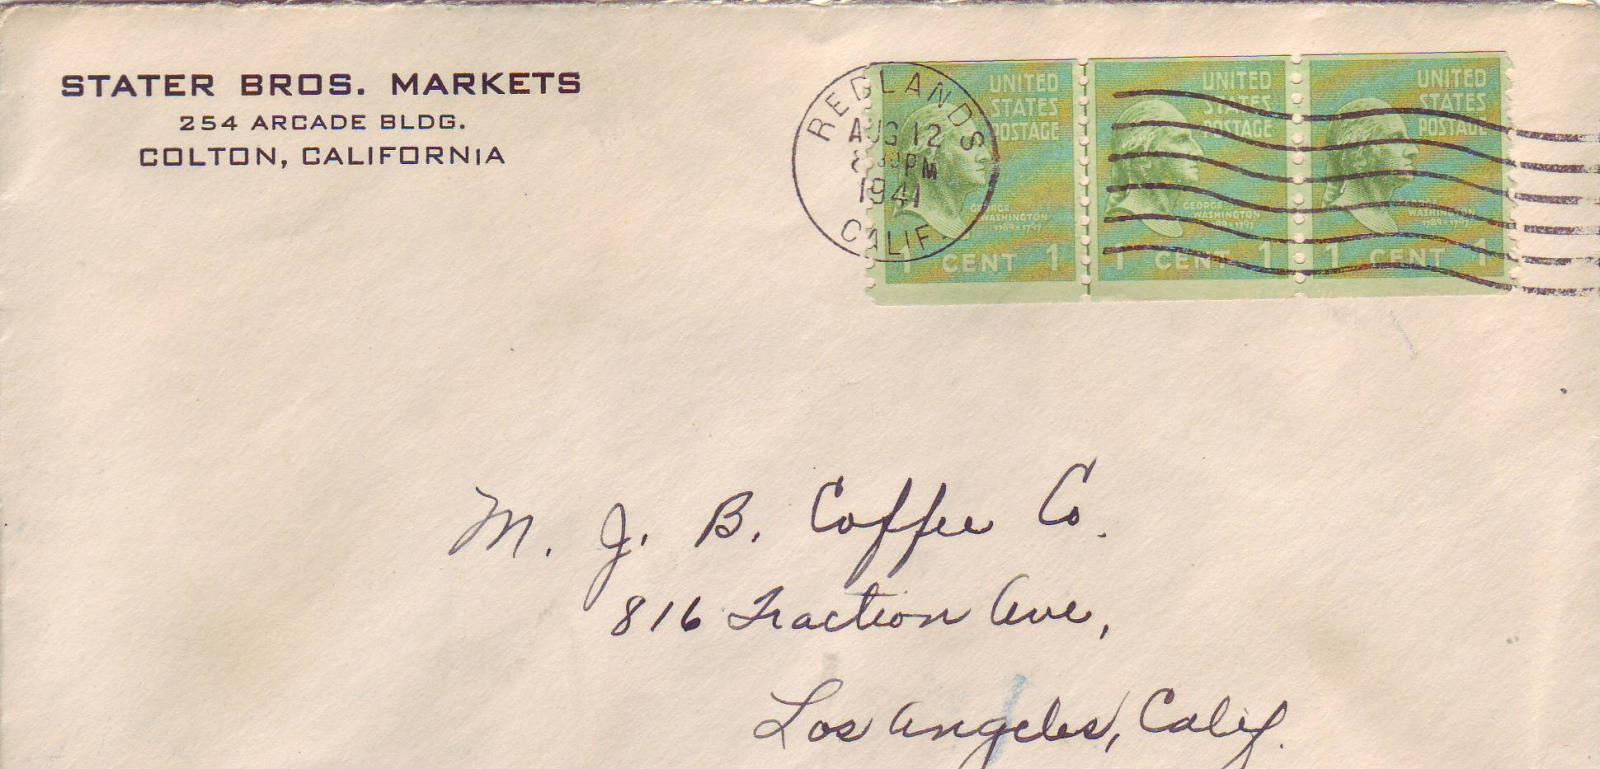 STATER BROS. MARKETS
254 ARCADE BLDG.
COLTON, CALIFORNIA
REDLANDS
AUG 12
PM
1941
CALIF.
UNITED
STATES
POSTAGE
GEORGE
WASHINGTON
1789-1797
1 CENT 1
UNITED
STATES
POSTAGE
GEORGE
WASHINGTON
1789-1797
1 CENT 1
UNITED
STATES
POSTAGE
GEORGE
WASHINGTON
1789-1797
1 CENT 1
M. J. B. Coffee Co.
816 Traction Ave,
Los Angeles, Calif.